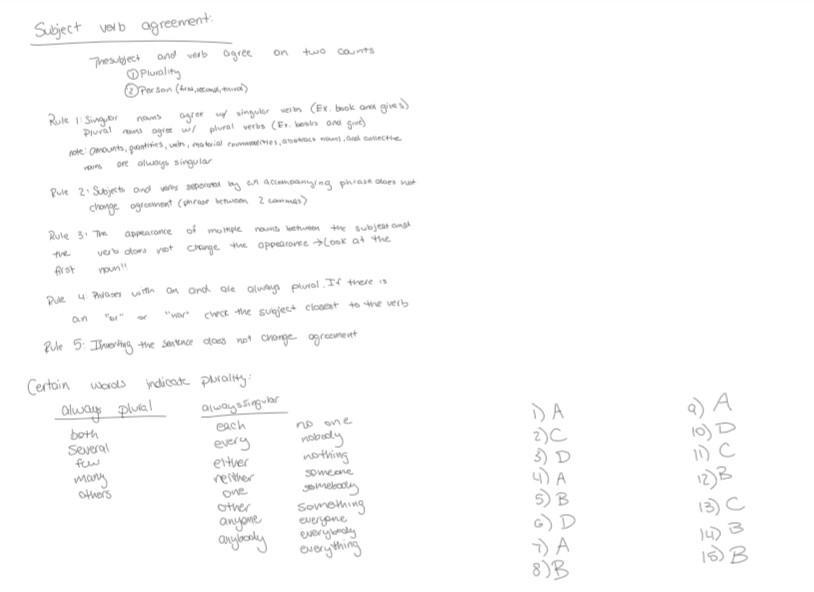 Subject verb agreement:
The subject and verb agree on two counts
① Plurality
② Person (first, second, third)
Rule 1: Singular nouns agree w/ singular verbs (Ex. book and gives)
Plural nouns agree w/ plural verbs (Ex. books and give)
note: amounts, quantities, units, material commodities, abstract nouns, and collective
nouns are always singular
Rule 2: Subjects and verbs separated by an accompanying phrase does not
change agreement (phrase between 2 commas)
Rule 3: The appearance of multiple nouns between the subject and
the verb does not change the appearance → Look at the
first noun!!
Rule 4 Phrases with an and are always plural. If there is
an "or" or "nor" check the subject closest to the verb
Rule 5: Inverting the sentence does not change agreement
Certain words indicate plurality:
always plural
both
several
few
many
others
always singular
each
every
either
neither
one
other
anyone
anybody
no one
nobody
nothing
someone
somebody
something
everyone
everybody
everything
1) A
2) C
3) D
4) A
5) B
6) D
7) A
8) B
9) A
10) D
11) C
12) B
13) C
14) B
15) B